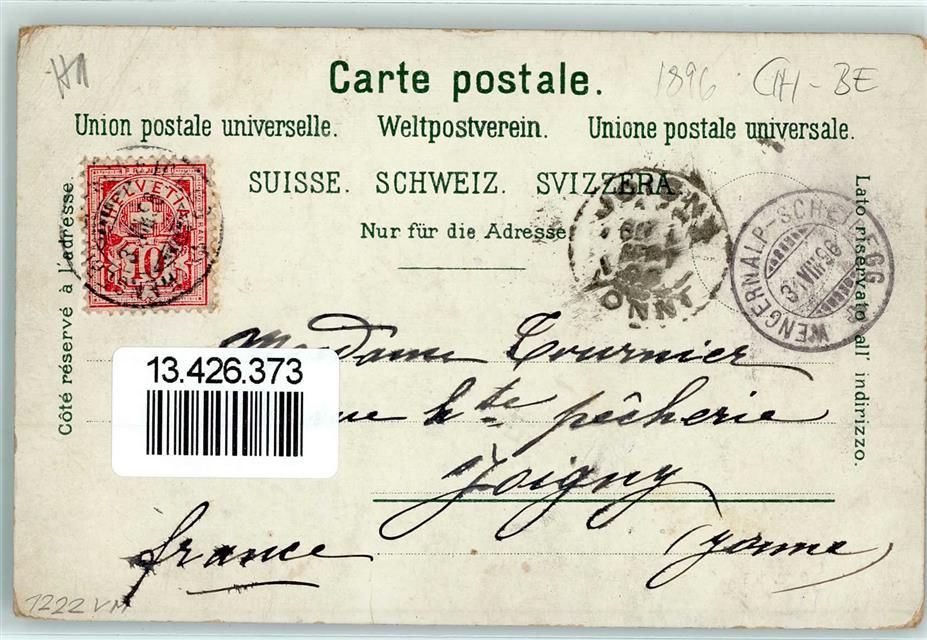 H1
Carte postale.
1896 CH-BE
Union postale universelle. Weltpostverein. Unione postale universale.
SUISSE. SCHWEIZ. SVIZZERA.
Nur für die Adresse
Côté réservé à l'adresse
Lato riservato all' indirizzo.
FRANCO
HELVETIA
10
JOIGNY
YONNE
WENGERNALP-SCHEIDEGG
3.VIII.96
Madame Tournier
13.426.373
rue hte pêcherie
Joigny
france (yonne)
1222 VM